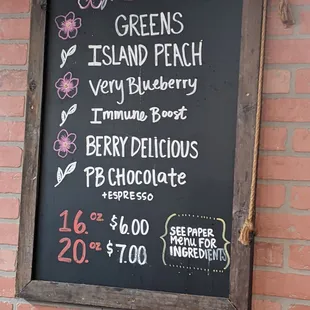 GREENS
ISLAND PEACH
Very Blueberry
Immune Boost
BERRY DELICIOUS
PB CHOCOLATE
+ ESPRESSO
16.oz $6.00
20.oz $7.00
SEE PAPER
Menu FOR
INGREDIENTS